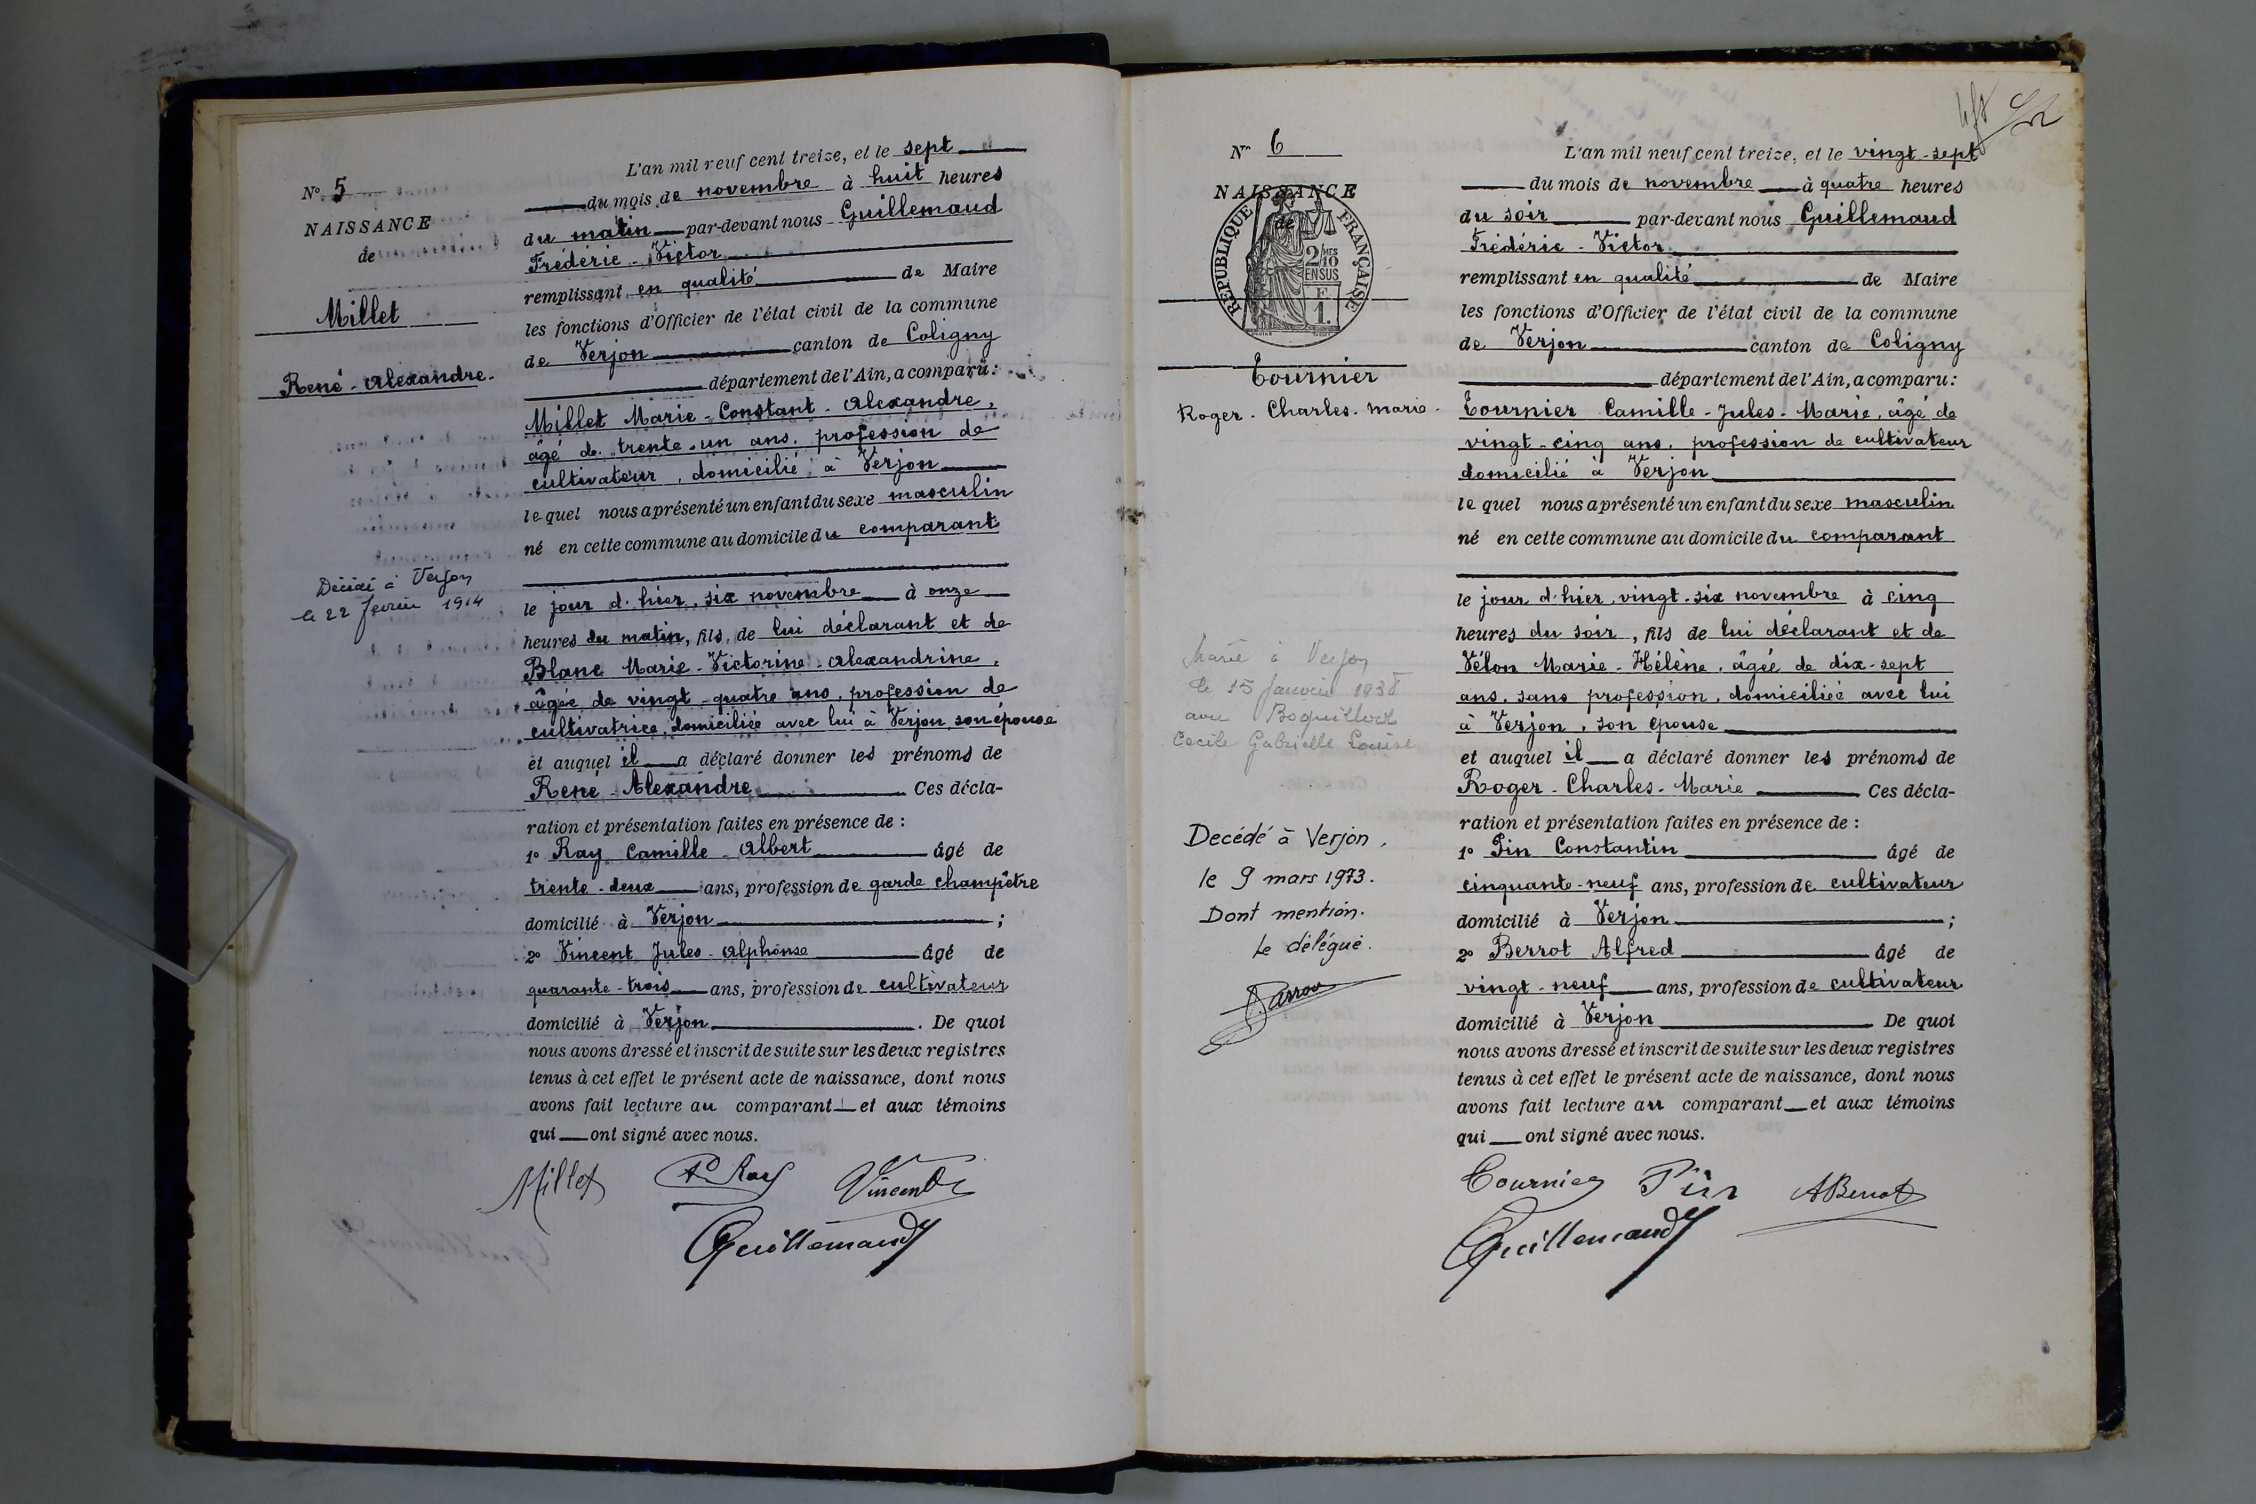 N° 5
NAISSANCE
de
Millet
René-Alexandre.
Décédé à Verjon
le 22 février 1914
L'an mil neuf cent treize, et le sept
du mois de novembre à huit heures
du matin par-devant nous Guillemaud
Frédéric-Victor
remplissant en qualité de Maire
les fonctions d'Officier de l'état civil de la commune
de Verjon canton de Coligny
département de l'Ain, a comparu:
Millet Marie-Constant-Alexandre,
âgé de trente-un ans, profession de
cultivateur, domicilié à Verjon
lequel nous a présenté un enfant du sexe masculin
né en cette commune au domicile du comparant
le jour d'hier, six novembre à onze
heures du matin, fils de lui déclarant et de
Blanc Marie-Victorine-Alexandrine,
âgée de vingt-quatre ans, profession de
cultivatrice, domiciliée avec lui à Verjon son épouse
et auquel il a déclaré donner les prénoms de
René-Alexandre Ces décla-
ration et présentation faites en présence de :
1° Ray Camille-Albert âgé de
trente-deux ans, profession de garde champêtre
domicilié à Verjon ;
2° Vincent Jules-Alphonse âgé de
quarante-trois ans, profession de cultivateur
domicilié à Verjon . De quoi
nous avons dressé et inscrit de suite sur les deux registres
tenus à cet effet le présent acte de naissance, dont nous
avons fait lecture au comparant et aux témoins
qui ont signé avec nous.
Millet Ray Vincent
Guillemaud
N° 6
NAISSANCE
de
RÉPUBLIQUE FRANÇAISE
2/10 MES
EN SUS
F
1.
Tournier
Roger-Charles-Marie.
Marié à Verjon
le 15 janvier 1938
avec
Cécile Gabrielle Louise
Decédé à Verjon,
le 9 mars 1973.
Dont mention.
Le délégué.
L'an mil neuf cent treize, et le vingt-sept
du mois de novembre à quatre heures
du soir par-devant nous Guillemaud
Frédéric-Victor
remplissant en qualité de Maire
les fonctions d'Officier de l'état civil de la commune
de Verjon canton de Coligny
département de l'Ain, a comparu:
Tournier Camille-Jules-Marie, âgé de
vingt-cinq ans, profession de cultivateur
domicilié à Verjon
lequel nous a présenté un enfant du sexe masculin
né en cette commune au domicile du comparant
le jour d'hier, vingt-six novembre à cinq
heures du soir, fils de lui déclarant et de
Vélon Marie-Hélène, âgée de dix-sept
ans, sans profession, domiciliée avec lui
à Verjon, son épouse
et auquel il a déclaré donner les prénoms de
Roger-Charles-Marie Ces décla-
ration et présentation faites en présence de :
1° Pin Constantin âgé de
cinquante-neuf ans, profession de cultivateur
domicilié à Verjon ;
2° Berrot Alfred âgé de
vingt-neuf ans, profession de cultivateur
domicilié à Verjon De quoi
nous avons dressé et inscrit de suite sur les deux registres
tenus à cet effet le présent acte de naissance, dont nous
avons fait lecture au comparant et aux témoins
qui ont signé avec nous.
Tournier Pin ABerrot
Guillemaud